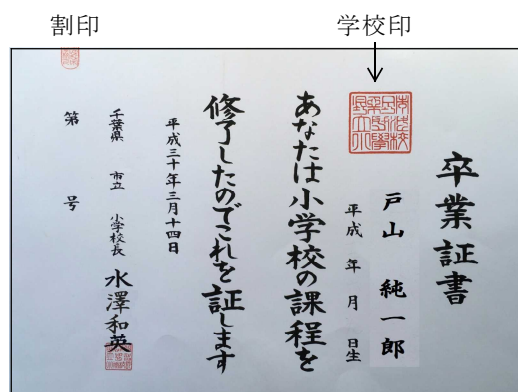 割印
学校印
卒業証書
戸山 純一郎
平成 年 月 日生
あなたは小学校の課程を
修了したのでこれを証します
平成三十年三月十四日
千葉県 市立 小学校長 水澤和英
第 号